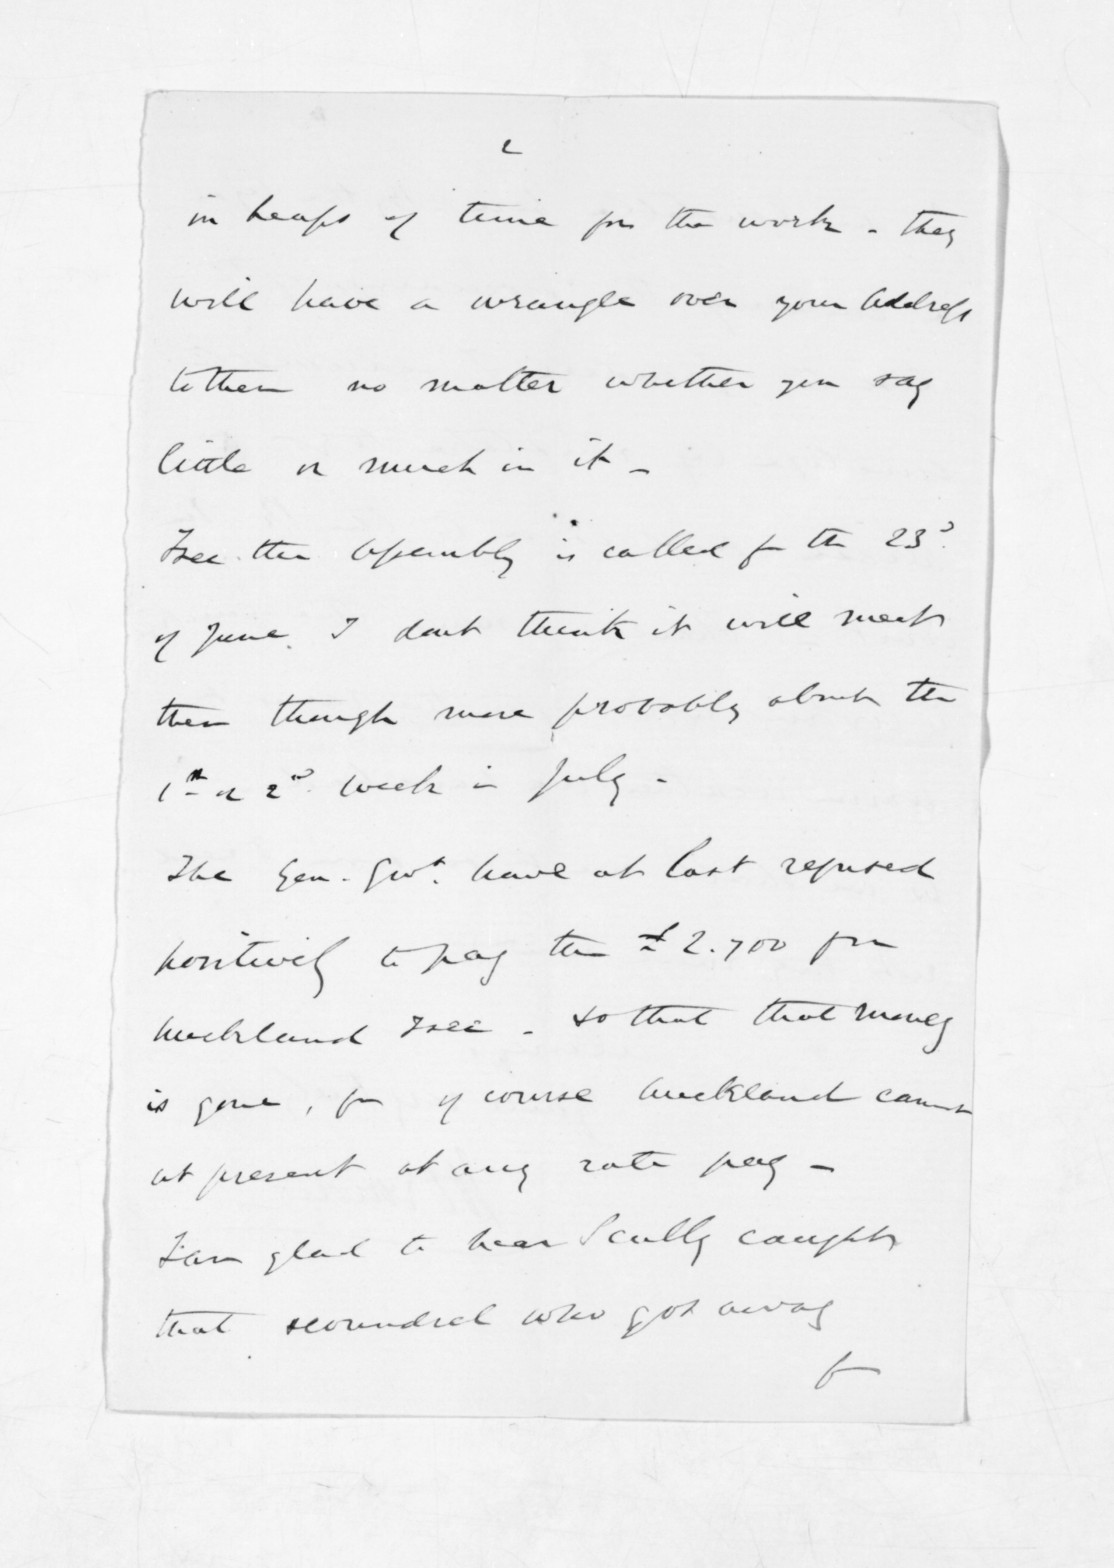 2
in heaps of time for the work - they
will have a wrangle over your address
to them no matter whether you say
little or much in it -
I see the Assembly is called for the 23d.
of June. I dont think it will meet
then though more probably about the
1st or 2nd. week in July -
The Gen. Govt. have at last refused
positively to pay the £2.700 for
Auckland I see - so that that money
is gone, for of course Auckland cannot
at present at any rate pay -
I am glad to hear Scully caught
that scoundrel who got away